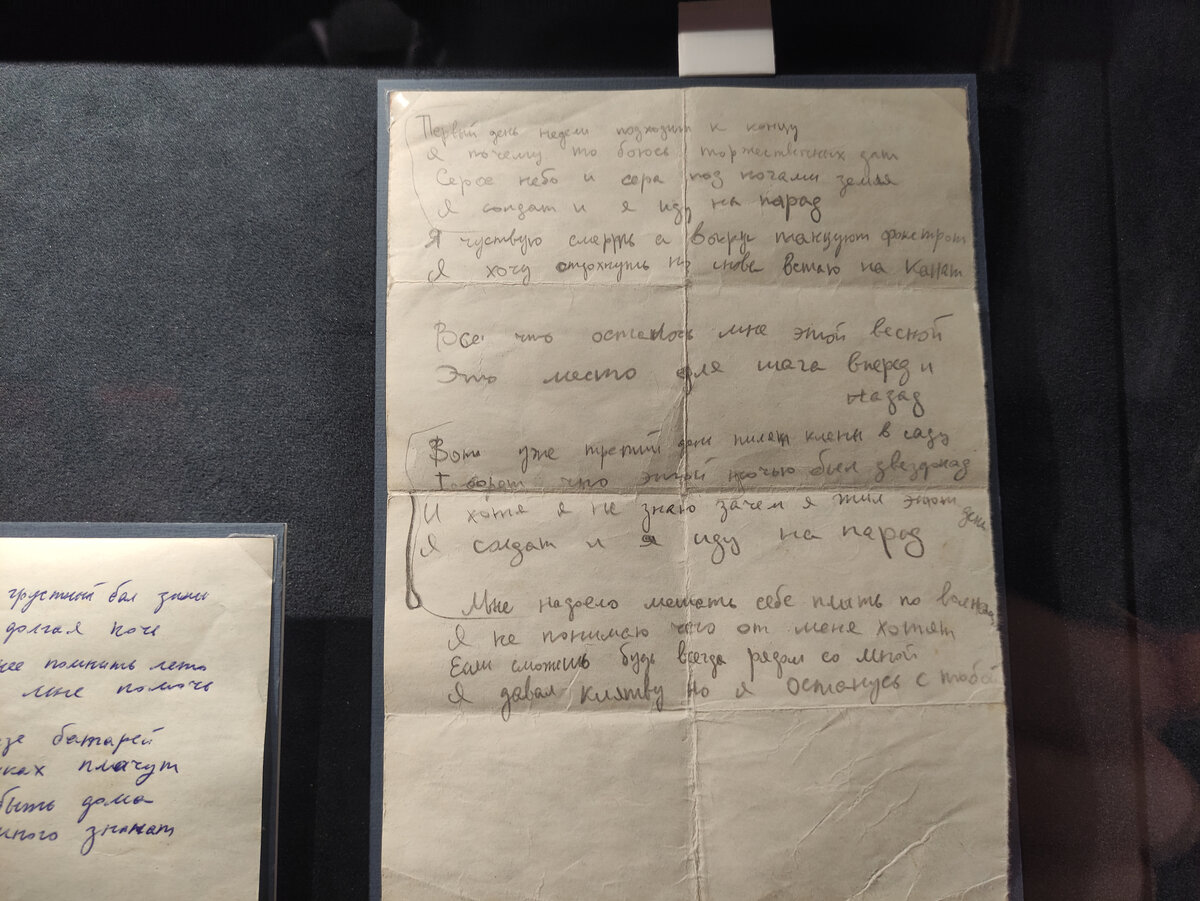 Первый день недели подходит к концу
Я почему то боюсь торжественных дат
Серое небо и сера под ногами земля
Я солдат и я иду на парад
Я чуствую смерть а вокруг танцуют фокстрот
Я хочу отдохнуть но снова встаю на канат
Все что осталось мне этой весной
Это место для шага вперед и
назад
Вот уже третий день пилят клены в саду
Говорят что этой ночью был звездопад
И хотя я не знаю зачем я жил этот день
Я солдат и я иду на парад
Мне надоело мешать себе плыть по волнам
Я не понимаю чего от меня хотят
Если сможешь будь всегда рядом со мной
Я давал клятву но я останусь с тобой
грустный бал зимы
долгая ноч
помнить лето
мне помочь
батарей
плачут
быть дома
много знакат